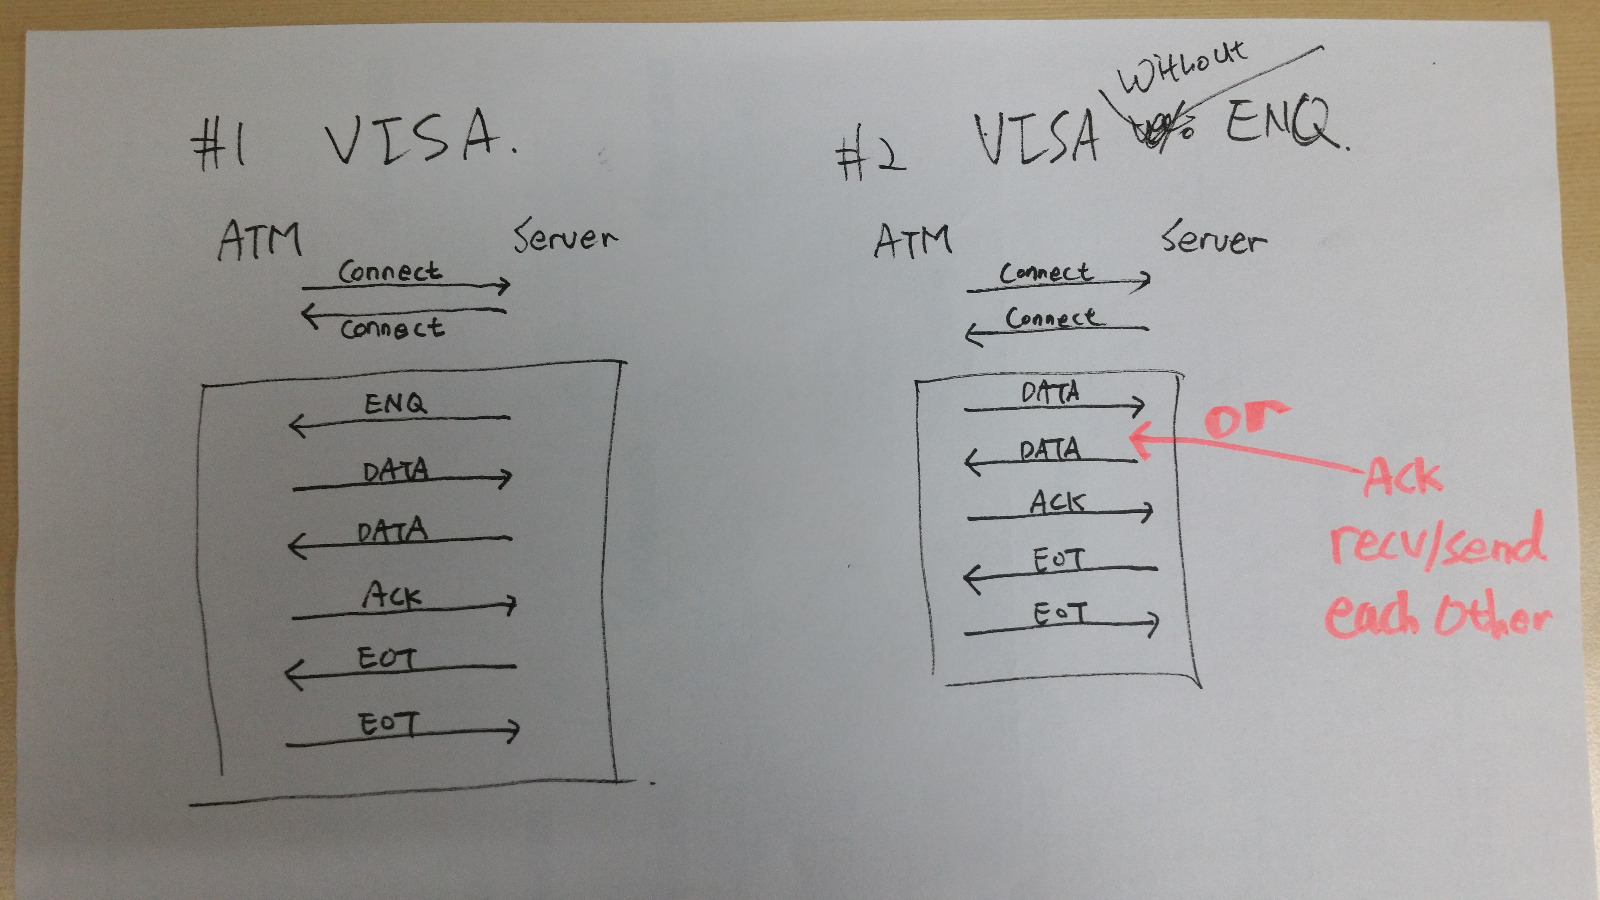 #1 VISA.
ATM Server
Connect
Connect
ENQ
DATA
DATA
Ack
EOT
EOT
#2 VISA Without ENQ.
ATM Server
Connect
Connect
DATA
or
DATA
ACK
EOT
EOT
Ack
recv/send
each other